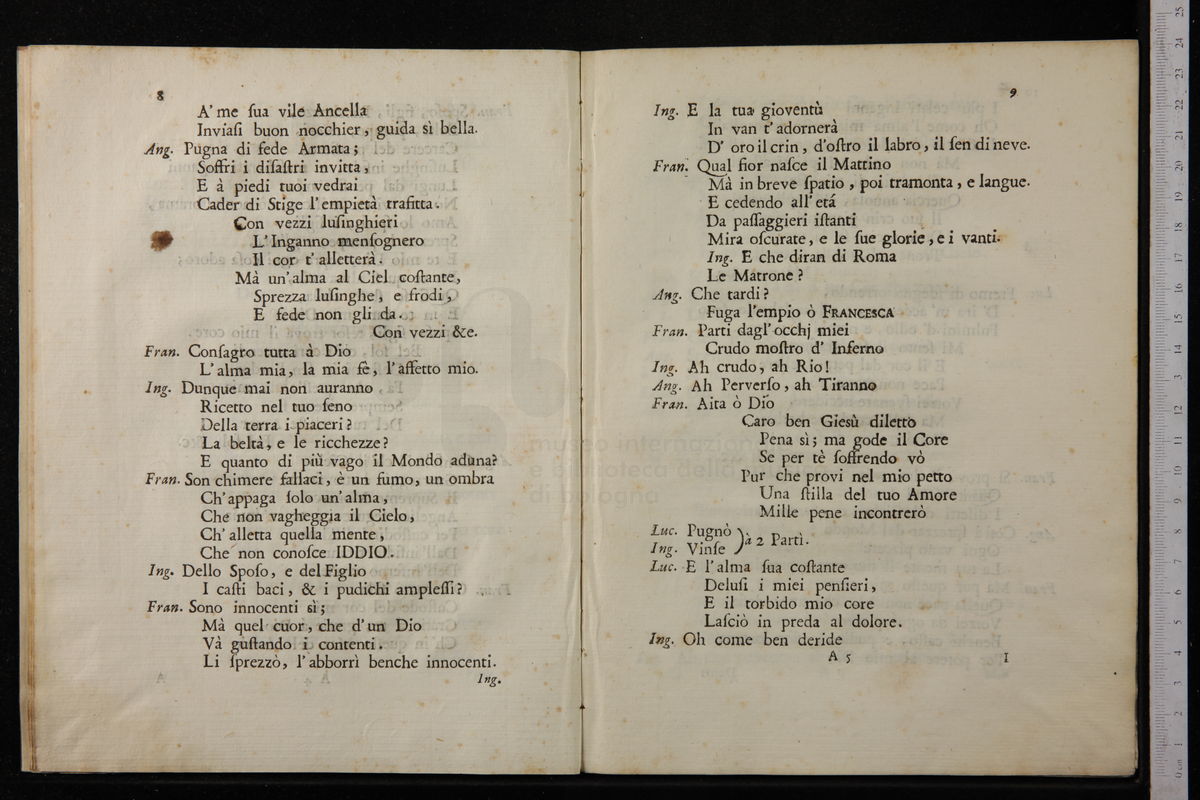 8
A' me ſua vile Ancella
Inviaſi buon nocchier, guida sì bella.
Ang. Pugna di fede Armata;
Soffri i diſaſtri invitta,
E à piedi tuoi vedrai
Cader di Stige l'empietà trafitta.
Con vezzi luſinghieri
L'Inganno menſognero
Il cor t'alletterà.
Mà un'alma al Ciel coſtante,
Sprezza luſinghe, e frodi,
E fede non gli da.
Con vezzi &c.
Fran. Conſagro tutta à Dio
L'alma mia, la mia fè, l'affetto mio.
Ing. Dunque mai non auranno
Ricetto nel tuo ſeno
Della terra i piaceri?
La beltà, e le ricchezze?
E quanto di più vago il Mondo aduna?
Fran. Son chimere fallaci, è un fumo, un ombra
Ch'appaga ſolo un'alma,
Che non vagheggia il Cielo,
Ch'alletta quella mente,
Che non conoſce IDDIO.
Ing. Dello Spoſo, e del Figlio
I caſti baci, & i pudichi ampleſſi?
Fran. Sono innocenti sì;
Mà quel cuor, che d'un Dio
Và guſtando i contenti.
Li ſprezzò, l'abborrì benche innocenti.
Ing.
9
Ing. E la tua gioventù
In van t'adornerà
D' oro il crin, d'oſtro il labro, il ſen di neve.
Fran. Qual fior naſce il Mattino
Mà in breve ſpatio, poi tramonta, e langue.
E cedendo all'etá
Da paſſaggieri iſtanti
Mira oſcurate, e le ſue glorie, e i vanti.
Ing. E che diran di Roma
Le Matrone?
Ang. Che tardi?
Fuga l'empio ò FRANCESCA
Fran. Parti dagl'occhj miei
Crudo moſtro d' Inferno
Ing. Ah crudo, ah Rio!
Ang. Ah Perverſo, ah Tiranno
Fran. Aita ò Dio
Caro ben Giesù diletto
Pena sì; ma gode il Core
Se per tè ſoffrendo vò
Pur che provi nel mio petto
Una ſtilla del tuo Amore
Mille pene incontrerò
Luc. Pugnò
Ing. Vinſe } à 2 Partì.
Luc. E l'alma ſua coſtante
Deluſi i miei penſieri,
E il torbido mio core
Laſciò in preda al dolore.
Ing. Oh come ben deride
A 5 I
museo internazionale
e biblioteca della
di bologna